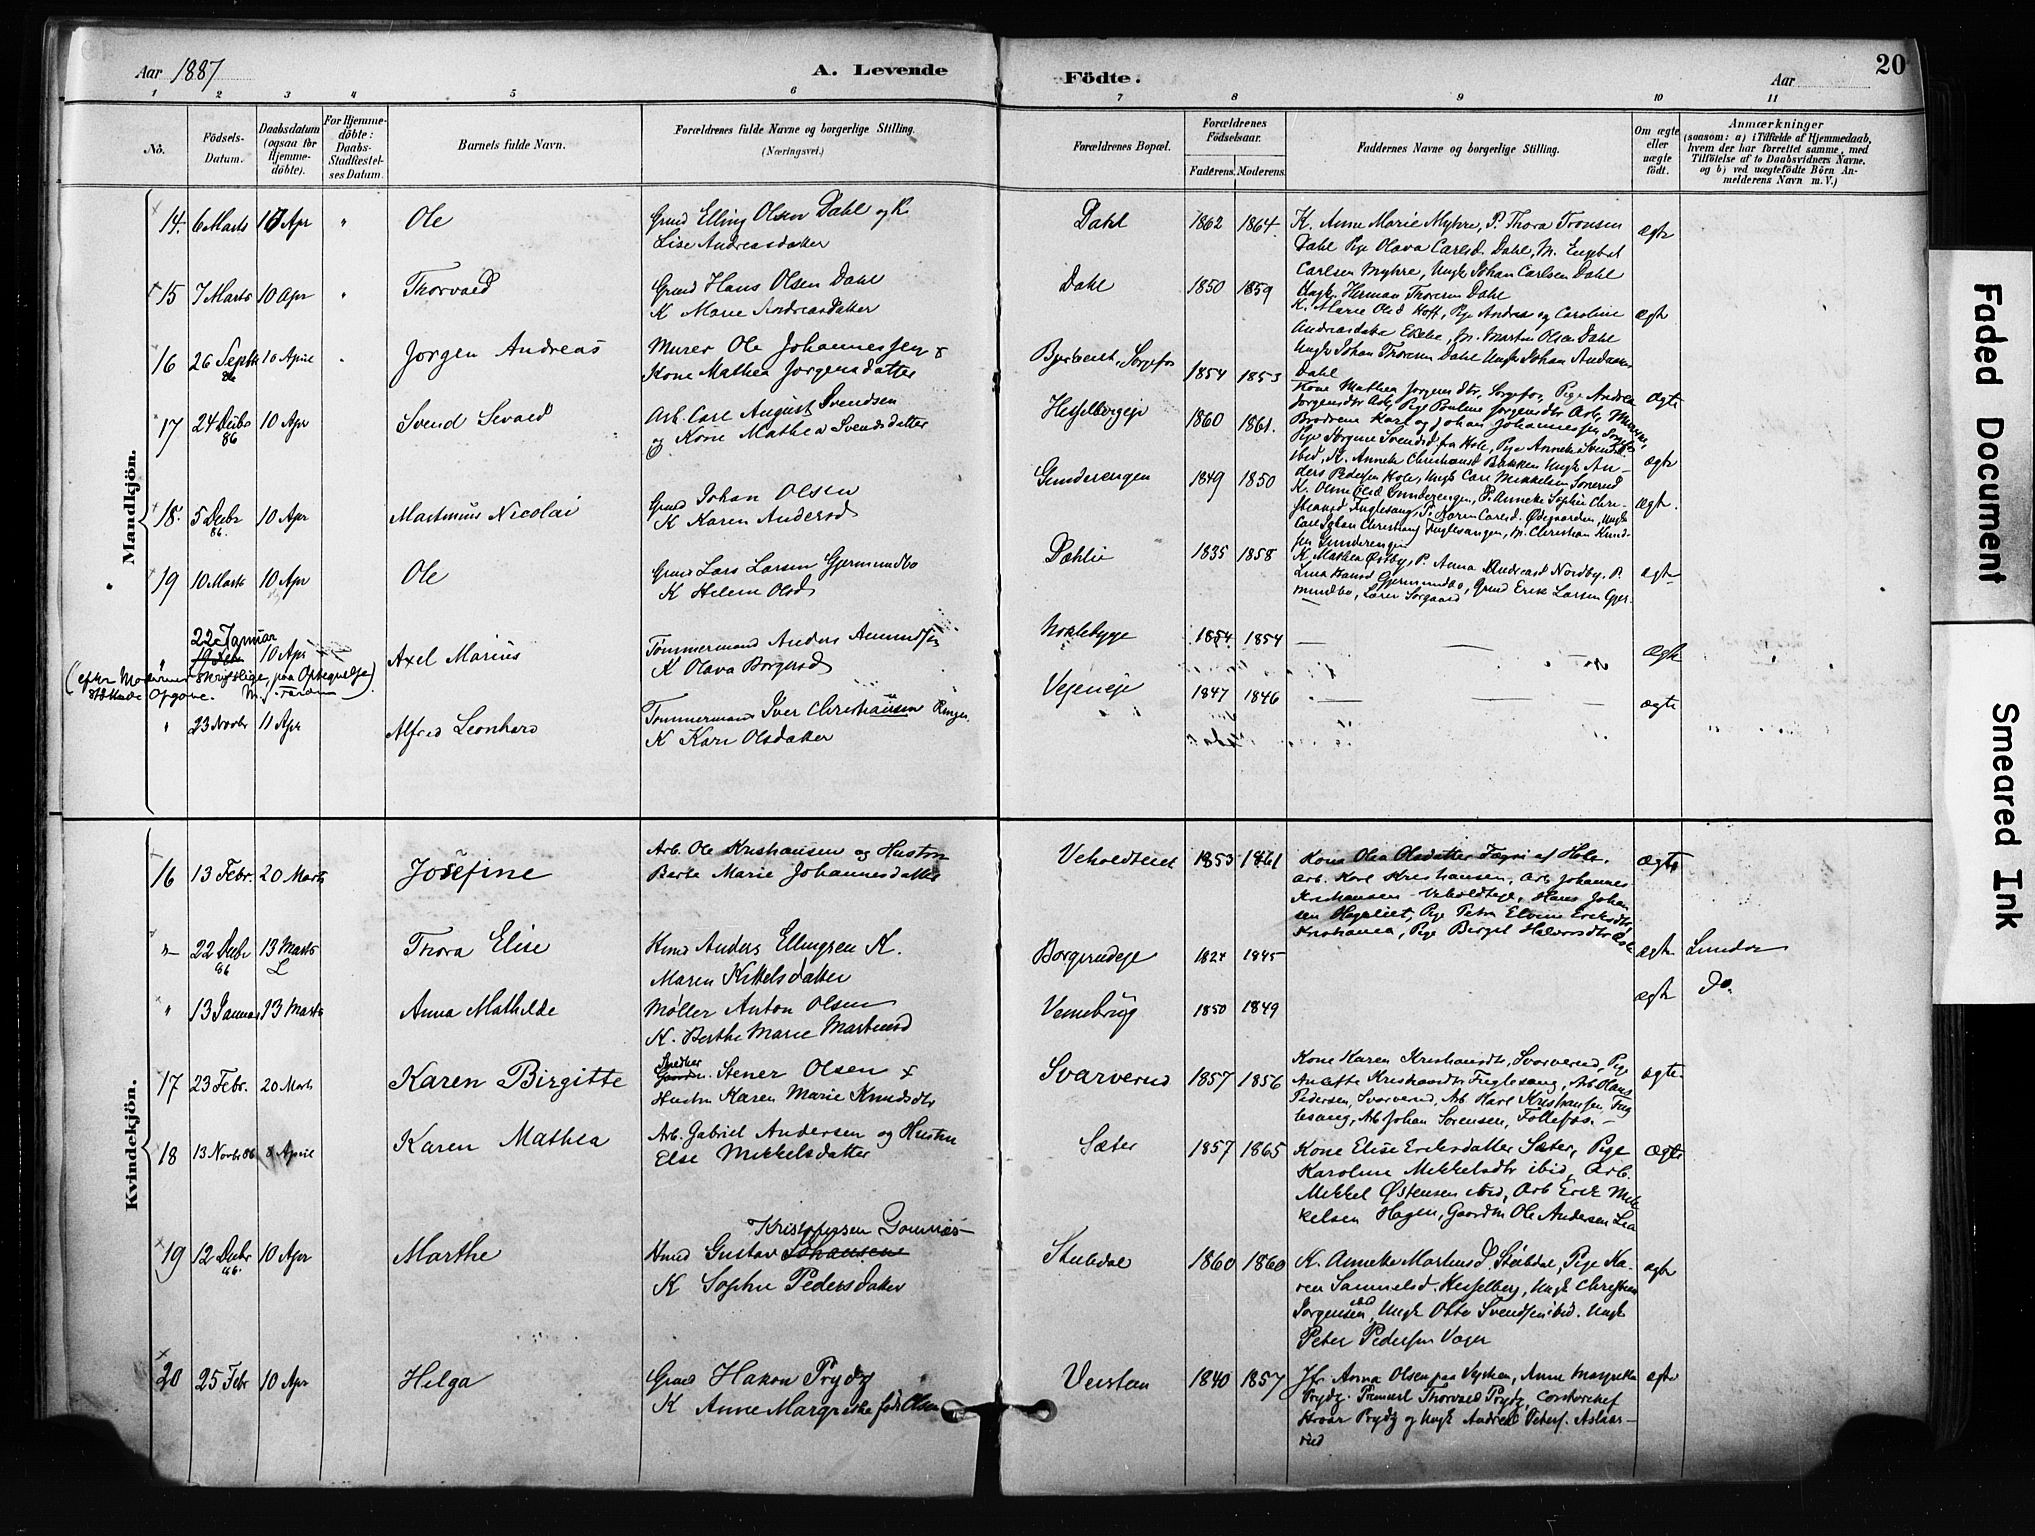 Aar 1887
A. Levende
Födte.
Aar
20
1 2 3 4 5 6 7 8 9 10 11
No.
Födsels-
Datum.
Daabsdatum
(ogsaa for
Hjemme-
döbte).
For Hjemme-
döbte:
Daabs-
Stadfæstel-
ses Datum.
Barnets fulde Navn.
Forældrenes fulde Navne og borgerlige Stilling.
(Næringsvei.)
Forældrenes Bopæl.
Forældrenes
Födselsaar.
Faderens. Moderens.
Faddernes Navne og borgerlige Stilling.
Om ægte
eller
uægte
födt.
Anmærkninger
(saasom: a) i Tilfælde af Hjemmedaab,
hvem der har forrettet samme, med
Tilföielse af to Daabsvidners Navne,
og b) ved uægtefödte Börn An-
melderens Navn m. V.)
Mandkjön.
14. 6 Marts 10 Apr " Ole
Elling Olsen Dahl og K.
Lise Andreasdatter
Dahl 1862 1864
K. Anne Marie Myhre, P. Thora Tronsen
Dahl Pige Olava Carlsd. Dahl, M. Engebret
Carlsen Myhre, Ungk Johan Carlsen Dahl
Ungk. Herman Thoresen Dahl
ægte
15 7 Marts 10 Apr " Thorvald
Hans Olsen Dahl
K Marie Andreasdatter
Dahl 1850 1859
K. Marie Olsd Hoff, Pige Andrea og Caroline
Andreasdatter, M. Martin Olsen Dahl
Ungk Johan Thoresen Dahl Ungk Johan Andersen
Dahl
ægte
16 26 Septbr 86 10 April Jörgen Andreas
Murer Ole Johannessen &
Kone Mathea Jörgensdatter
Sorgefos 1854 1853
Kone Mathea Jörgensdtr, Sorgefos, Pige Andrea
Jörgensdtr, Pige Pauline Jörgensdtr
Brödrene Karl og Johan Johannessen Sorgefos
ægte
17 24 Decbr 86 10 Apr Svend Sevald
Arb. Carl August Svendsen
og Kone Mathea Svendsdatter
Hesselbergeje 1860 1861.
Pige Jörgine Svendsd fra Hole, Pige Anneke Svendsd
ibid, K. Anneke Christiansd Bakken Ungk An-
ders Pedersen Hole, Ungk Carl Mikkelsen Sonerud
ægte
18. 5 Decbr 86. 10 Apr Martinius Nicolai
Johan Olsen
K Karen Andersd
Gunderengen 1849 1850
K. Oline Olsd Gunderengen, P. Anneke Sophie Chri-
stiansd Fuglesang, P. Karen Carlsd. Ødegaarden, Ungk
Carl Johan Christians Fuglesangen, M. Christian Knud-
sen Gunderengen
ægte.
19 10 Marts 10 Apr Ole
Lars Larsen Gjermundbo
K Helene Olsd
Dæhlie 1835 1858
K. Mathea Østby, P. Anna Andreasd Nordby. P.
Lina Hansd Gjermundbo, Erik Larsen Gjer-
mundbo, Lærer Sørgaard
ægte
22 Januar
19 Feb 10 Apr
Axel Marius
Tömmermand Anders Amundsen
K Olava Borgersd
Noklebyge 1854. 1854
ægte
(efter Moderens skriftlige, paa Optegnelse)
Opgave.
" 23 Novbr 11 Apr Alfred Leonhard
Tömmermand Iver Christiansen
K Kari Olsdatter
Vejeneje 1847 1846
ægte
Kvindekjön.
16 13 Febr. 20 Marts Josefine
Arb. Ole Kristiansen og Hustru
Berte Marie Johannesdatter
Veholdteiet 1853 1861
Kone Olea Olsdatter af Hole.
Arb. Karl Kristiansen, Arb Johannes
Kristiansen Veholdteje, Hans Johan
sen Hagaliet, Pige Petra Elvine Eriksdtr,
Kristiania, Pige Birgit Halvorsdtr
ægte
" 22 Decbr 86 13 Marts Thora Elise
Anders Ellingsen K.
Maren Kittelsdatter
Borgerudeje 1824 1845
ægte Lunder
" 13 Januar 13 Marts Anna Mathilde
Møller Anton Olsen
K. Berthe Marie Martinsd
Vemebrug 1850 1849
ægte Do.
17 23 Febr. 20 Marts Karen Birgitte
Snedker
Stener Olsen &
Hustru Karen Marie Knudsdtr
Svarverud 1857 1856
Kone Karen Kristiansdtr, Svarverud, Pige
Anette Kristiansdtr Fuglesang, Arb Hans
Pedersen, Svarverud, Arb Karl Kristiansen, Fug
lesang, Arb Johan Sörensen, Follefos.
ægte.
18 13 Novbr 86 8 April Karen Mathea
Arb. Gabriel Andersen og Hustru
Else Mikkelsdatter
Sæter 1857 1865
Kone Elise Eriksdatter Sæter, Pige
Karoline Mikkelsdtr ibid, Arb.
Mikkel Østensen ibid, Arb Erik Mik
kelsen Hagen, Gaardm Ole Andersen
ægte
19 12 Decbr 86. 10 Apr Marthe
Kristoffersen
Gustav Johansen
K Sophie Pedersdatter
Stubdal 1860 1860
K. Anneke Martinsd Stubdal, Pige Ka-
ren Samuelsd. Hesselberg, Ungk Christian
Jörgensen ibid, Ungk Otto Svendsen ibid. Ungk
Peter Pedersen Vager
ægte
20 25 Febr 10 Apr Helga
Hakon Prydz
K Anne Margrethe født Olsen
Veistan 1840 1857
Jfr. Anna Olsen paa Vejsten, Anne Margrethe
Prydz. Thorvald Prydz, Contorchef
Hvoar Prydz og Ungk Andreas Peters. Aslaks-
rud
ægte
Faded Document
Smeared Ink